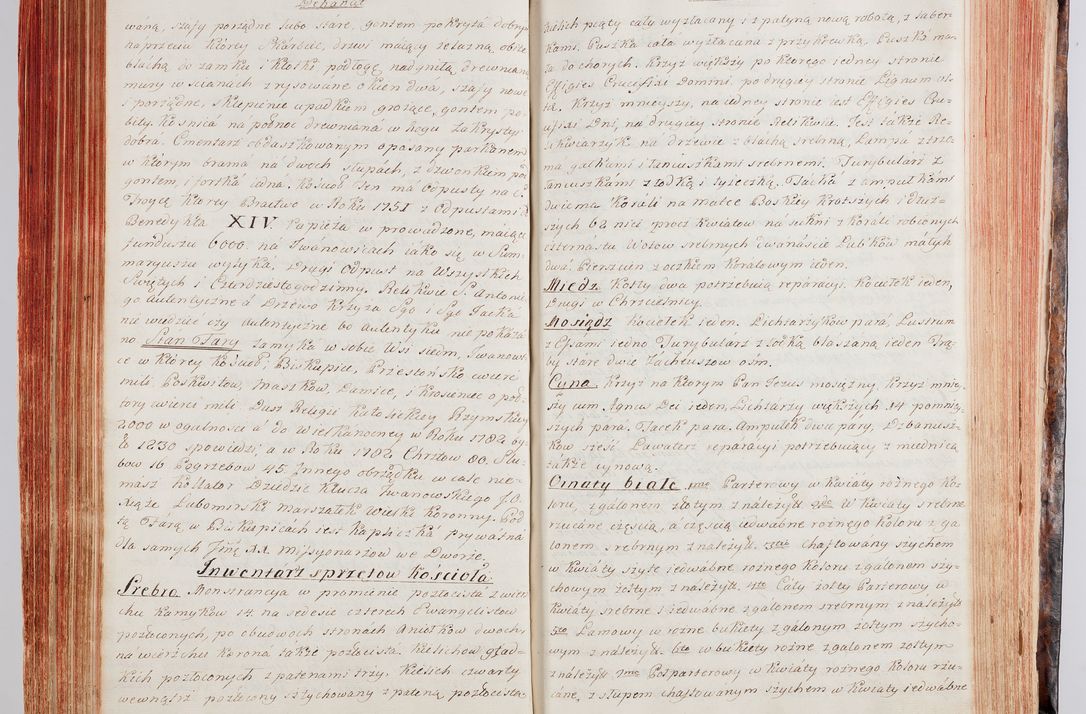 Dekanat
waną, szafy porządne lubo stare, gontem pokryta dobrym
naprzeciu ktorey Skarbiec, drzwi maiący zelazna, obite
blachą do zamku i kłotki podłogę nadgniłą drewnianą
mury w scianach zrysowane okien dwa, szafy nowe
i porządne, sklepienie upadkiem grożące, gontem po-
bity. Kośnica na pułnoc drewniana w Rogu Zakrystyi
dobra. Cmentarz obdaszkowanym opasany parkanem
w ktorym brama na dwoch słupach, z dzwonkiem pod
gontem, i fortka iedna. Kościoł ten ma Odpusty na S.
Troycę ktorey Bractwo w Roku 1751 z Odpustami od
Benedykta XIV. Papieża wprowadzone, maiące
funduszu 6000. na Iwanowicach iako się w Sum-
maryuszu wytyka. Drugi odpust na Wszystkich
Swiętych i Czterdziestogodzinny. Relikwie S. Antonie-
go autentyczne a Drzewa Krzyza Sgo i Sgo Jacka
nie wiedzieć czy autentyczne bo autentyku nie pokaza-
no. Stan Fary zamyka w sobie Wsi siedm, Iwanowi-
ce w ktorey Kościoł, Biskupice, Przestańsko cwierć
mili, Poskwitow, Maszkow, Damice, i Krasieniec o poł-
tory cwierci mili. Dusz Religii Katolickiey Rzymskiey
2000 w ogulności a do Wielkanocney w Roku 1782 by-
ło 1230 spowiedzi, a w Roku 1782. Chrztow 80. Slu-
bow 16. Pogrzebow 45. Innego obrządku w cale nie-
masz Kollator Dziedzic Klucza Iwanowskiego J. O.
Xiąże Lubomirski Marszałek Wielki Koronny. Pod
tą Farą w Biskupicach iest Kapliczka prywatna
dla samych Jmć XX. Missyonarzow we Dworze.
Inwentarz sprzetow Kościoła
Srebro Monstrancya w promienie pozłocista z wierz-
chu Kamykow 14. na sedesie czterech Ewangelistow
pozłoconych, po obudwoch stronach Aniołkow dwoch,
na wierzchu korona także pozłocista. Kielichow gład-
kich pozłoconych z patenami trzy. Kielich czwarty
wewnątrz pozłocony sztychowany z pateną pozłocista
Kielich piąty cały wyzłacany i z patyną nową robotą, z faber-
kami. Puszka cała wyzłacana z przykrywką, Puszka ma-
ła do chorych. Krzyż większy po ktorego iedney stronie
Effigies Crucifixi Domini, po drugiey stronie Lignum vi-
tæ, Krzyż mnieyszy, na iedney stronie iest Effigies Cru-
cifixi Dni, na drugiey stronie Relikwie. Jest także Re-
likwiarzyk na drzewie z blachą srebrną, Lampa z trze-
ma gałkami i łancuszkami srebrnemi. Turybularz z
łancuszkami z łodką i łyżeczką. Tacka z ampułkami
dwiema Korali na Matce Boskiey krotszych i dłuż-
szych 62 nici procz kwiatow na sukni z korali robionych
czternastu Wotow srebrnych dwanaście Lubkow małych
dwa. Pierscien z oczkiem koralowym ieden.
Miedź Kotły dwa potrzebuią reparacyi. Kociełek ieden,
Drugi w Chrzcielnicy.
Mosiądz Kociełek ieden. Lichtarzykow para, Lustrum
z Essami iedno Turybularz z łodką blaszaną ieden Trą-
by stare dwie Zacheuszow osm.
Cyna Krzyż na ktorym Pan Jezus mosiężny, Krzyż mniey-
szy cum Agnus Dei ieden, Lichtarzy większych 14 pomniey-
szych para. Tacek para. Ampułek dwa pary, Dzbanusz-
kow sześć. Lawaterz reparacyi potrzebuiący z miednicą
także cynową.
Ornaty białe 1mo Parterowy w kwiaty rożnego kolo-
loru, z galonem złotym z należyt. 2do W kwiaty srebrne
rzucane częscią, a częscią iedwabne rożnego koloru z ga-
lonem srebrnym z należyt. 3tio chaftowany szychem
w kwiaty szyte iedwabne rożnego koloru z galonem szy-
chowym żołtym z należyt. 4to Cały żołty Parterowy w
kwiaty srebrne i iedwabne z galonem srebrnym z należyt.
5to Lamowy w rożne bukiety z galonem żołtym szycho-
wym z należyt. 6to w bukiety rożne z galonem żołtym
z należyt. 7mo Połparterowy w kwiaty rożnego koloru rzu-
cane, z słupem chaftowanym szychem w kwiaty iedwabne